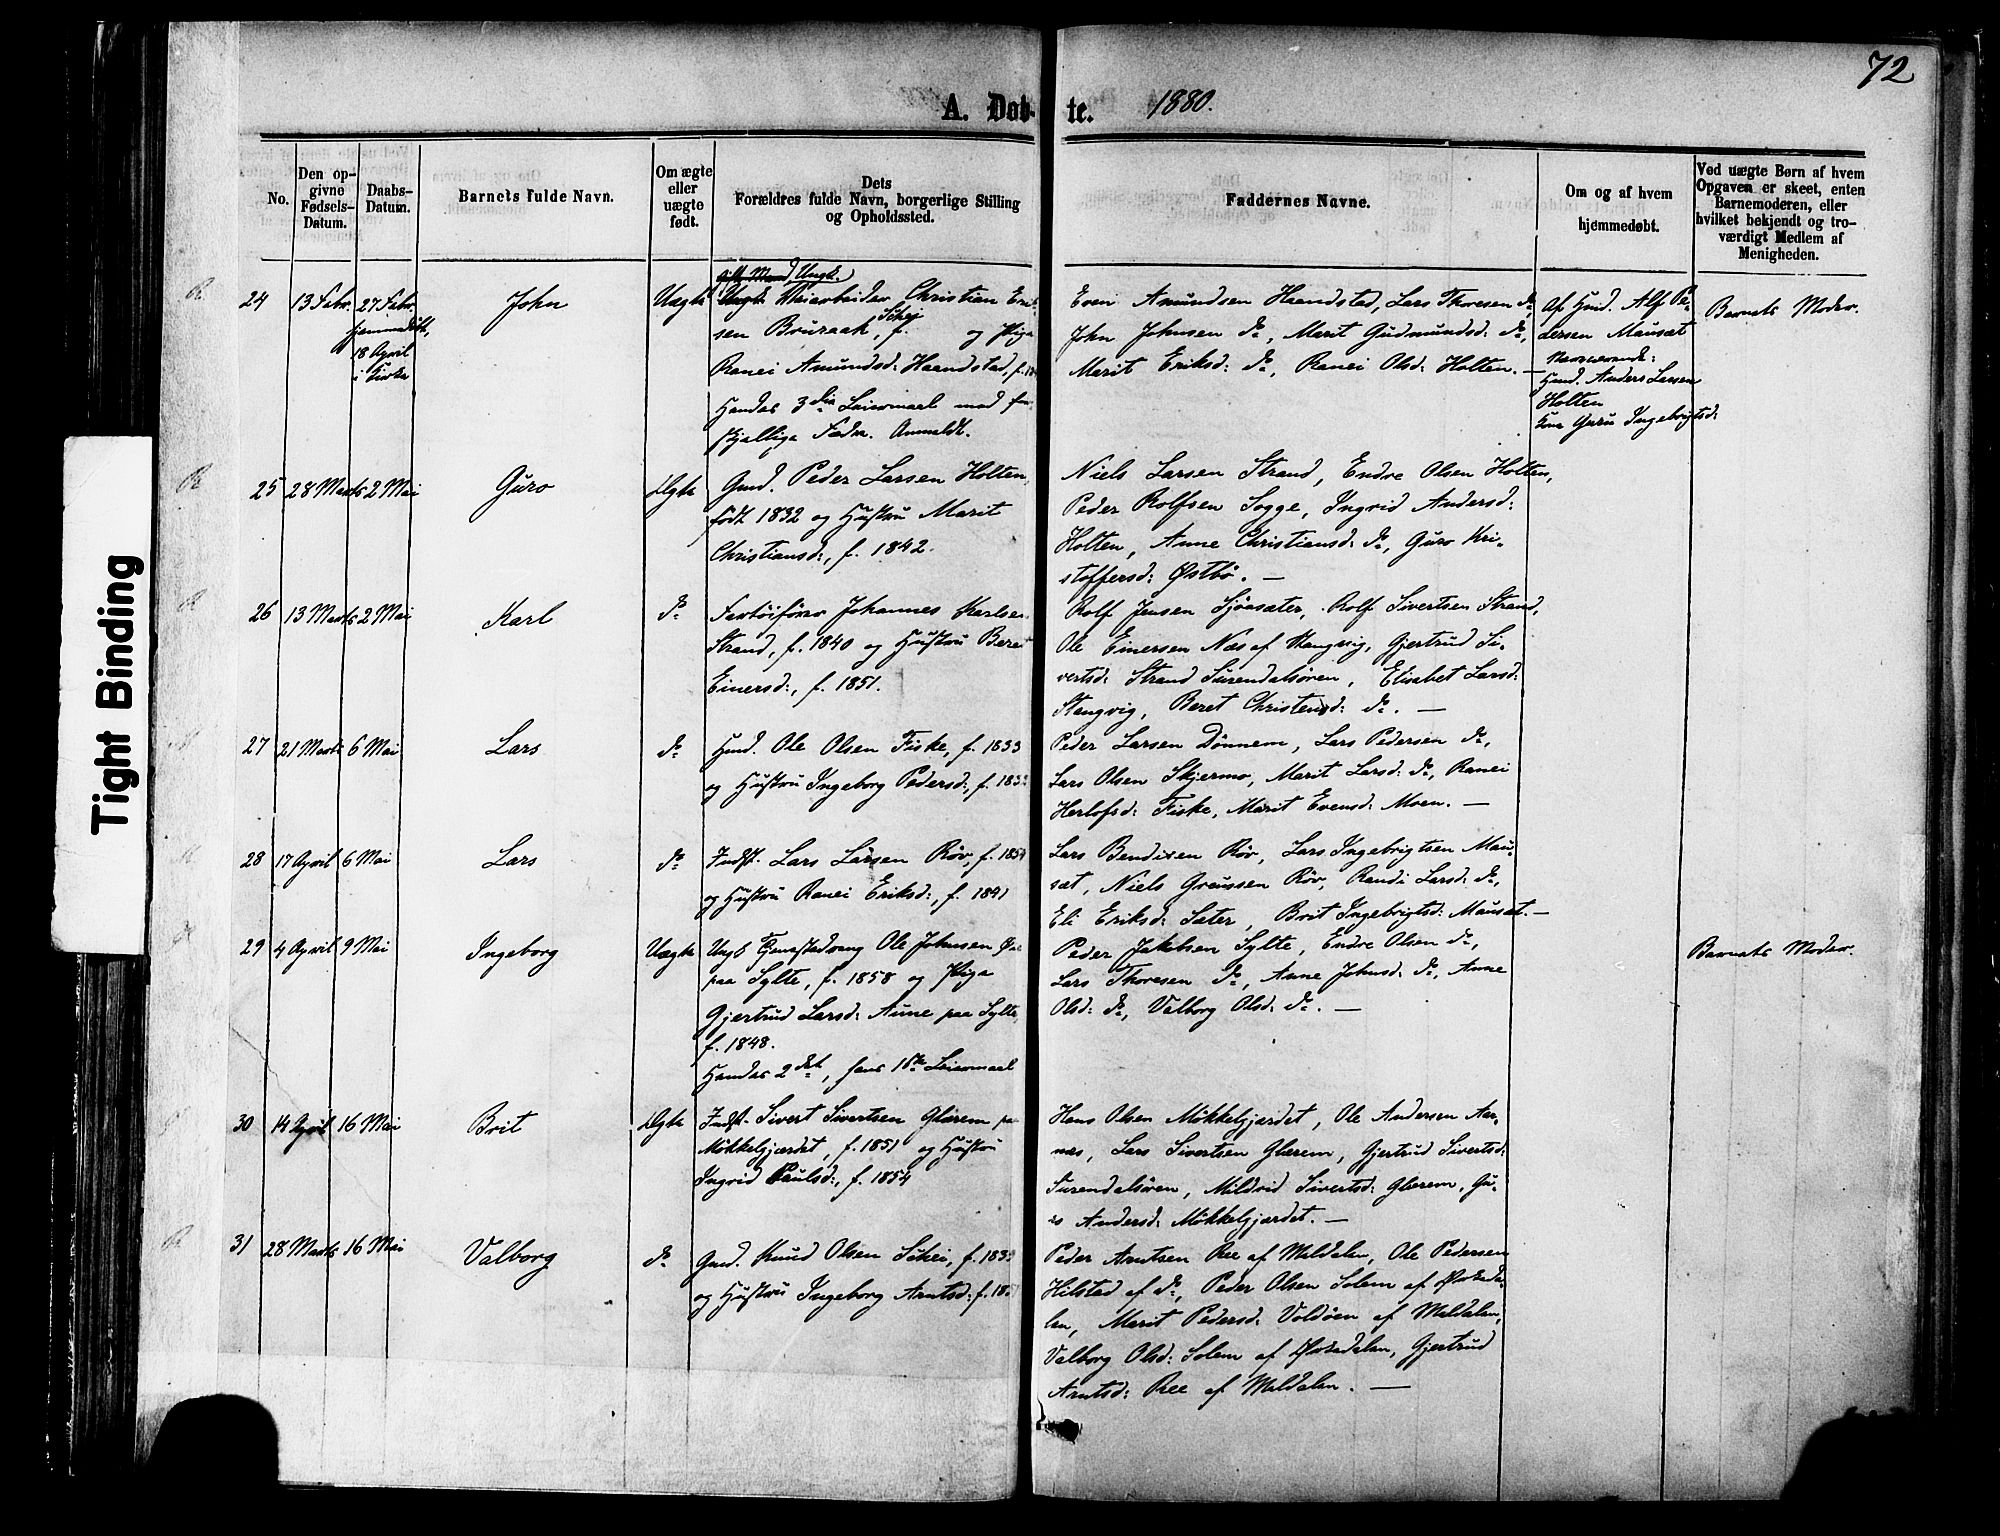 72
A. Døb- te. 1880.
No.
Den op-
givne
Fødsels-
Datum.
Daabs-
Datum.
Barnets fulde Navn.
Om ægte
eller
uægte
født.
Dets
Forældres fulde Navn, borgerlige Stilling
og Opholdssted.
Faddernes Navne.
Om og af hvem
hjemmedøbt.
Ved uægte Børn af hvem
Opgaven er skeet, enten
Barnemoderen, eller
hvilket bekjendt og tro-
værdigt Medlem af
Menigheden.
24 13 Febr. 27 Febr.
hjemmedøbt,
18 April
i Kirke
John
Uægte
gift Mand Ungk.
Ungk. Veiarbeider Christian Erik-
sen Bruraak, f. og Pige
Ranei Amundsd: Haandstad, f.
Hendes 3die Leiermaal med for-
skjellige Fædre. Anmeldt.
Even Amundsen Haandstad, Lars Thoresen do,
John Johnsen do, Marit Gudmundsd: do,
Marit Eriksd: do, Ranei Olsd: Holten. —
Af Gmd. Alf Pe-
dersen Mausæt
Nærværende:
Gmd. Anders Larsen
Holten
Kone Guru Ingebrigtsd:
Barnets Moder.
25 28 Marts 2 Mai
Guro
Ægte
Gmd. Peder Larsen Holten,
født 1832 og Hustru Marit
Christiansd:, f. 1842.
Niels Larsen Strand, Endre Olsen Holten,
Peder Rolfsen Sogge, Ingrid Andersd:
Holten, Anne Christiansd: do, Guro Kri-
stoffersd: Østbö. —
26 13 Marts 2 Mai
Karl
do
Fartöiförer Johannes Karlsen
Strand, f. 1840 og Hustru Beret
Einersd:, f. 1851.
Rolf Jensen Sjöasæter, Rolf Sivertsen Strand,
Ole Einersen Næs af Stangvig, Gjertrud Si-
vertsd: Strand Surendalsören, Elisabet Larsd:
Stangvig, Beret Christensd: do. —
27 21 Marts 6 Mai
Lars
do
Gmd. Ole Olsen Fiske, f. 1833
og Hustru Ingeborg Pedersd:, f. 183
Peder Larsen Dönnem, Lars Pedersen do,
Lars Olsen Skjermo, Marit Larsd: do, Ranei
Herlofsd: Fiske, Marit Evensd: Moen. —
28 17 April 6 Mai
Lars
do
Indst. Lars Larsen Röv, f. 1854
og Hustru Ranei Eriksd:, f. 1841
Lars Bendixen Röv, Lars Ingebrigtsen Mau-
sæt, Niels Greussen Röv, Randi Larsd: do,
Eli Eriksd: Sæter, Brit Ingebrigtsd: Mausæt. —
29 4 April 9 Mai
Ingeborg
Uægte
Ungk. Ole Johnsen
paa Sylte, f. 1858 og Pige
Gjertrud Larsd: Aune paa Sylte,
f. 1848.
Hendes 2det, hans 1ste Leiermaal
Peder Jakobsen Sylte, Endre Olsen do,
Lars Thoresen do, Anne Johnsd: do, Anne
Olsd: do, Valborg Olsd: do. —
Barnets Moder.
30 14 April 16 Mai
Brit
Ægte
Indst. Sivert Sivertsen Glærem paa
Mökkelgjærdet, f. 1851 og Hustru
Ingrid Paulsd:, f. 1854
Hans Olsen Mökkelgjærdet, Ole Andersen Aar-
næs, Lars Sivertsen Glærem, Gjertrud Sivertsd:
Surendalsören, Mildrid Sivertsd: Glærem, Gu-
ro Andersd: Mökkelgjærdet. —
31 28 Marts 16 Mai
Valborg
do
Gmd. Knud Olsen Schei, f. 183
og Hustru Ingeborg Arntsd: f. 18
Peder Arntsen Ree af Meldalen, Ole Pedersen
Hilstad af do, Peder Olsen Solem af Örkeda-
len, Marit Pedersd: Voldöen af Meldalen,
Valborg Olsd: Solem af Örkedalen, Gjertrud
Arntsd: Ree af Meldalen. —
Tight Binding